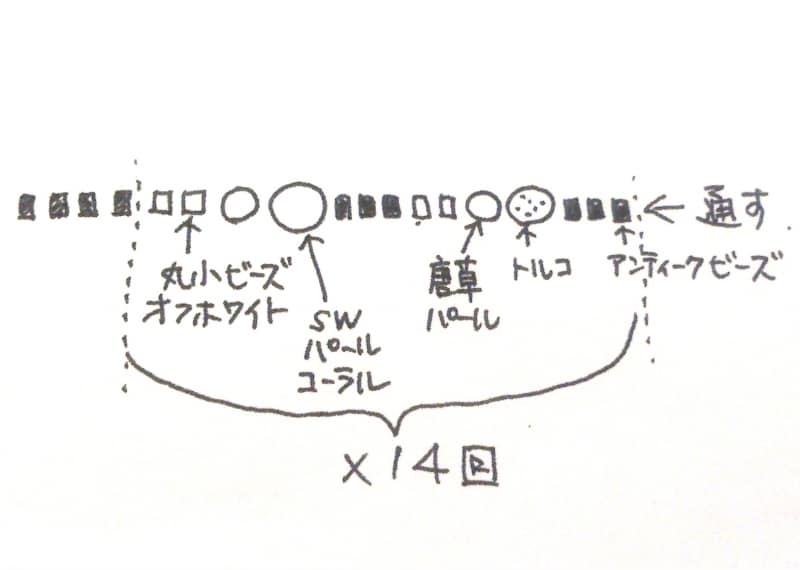 通す
丸小ビーズ
オフホワイト
SW
パール
コーラル
唐草
パール
トルコ
アンティークビーズ
×14回